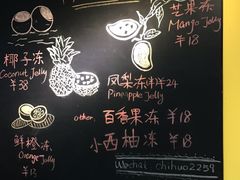 芒果冻
Mango Jelly
¥18
椰子冻
Coconut Jelly
¥38
凤梨冻(半)¥24
Pineapple Jelly
other,
百香果冻 ¥18
鲜橙冻
Orange Jelly
¥18
小西柚冻 ¥18
Wechat chihuo2259